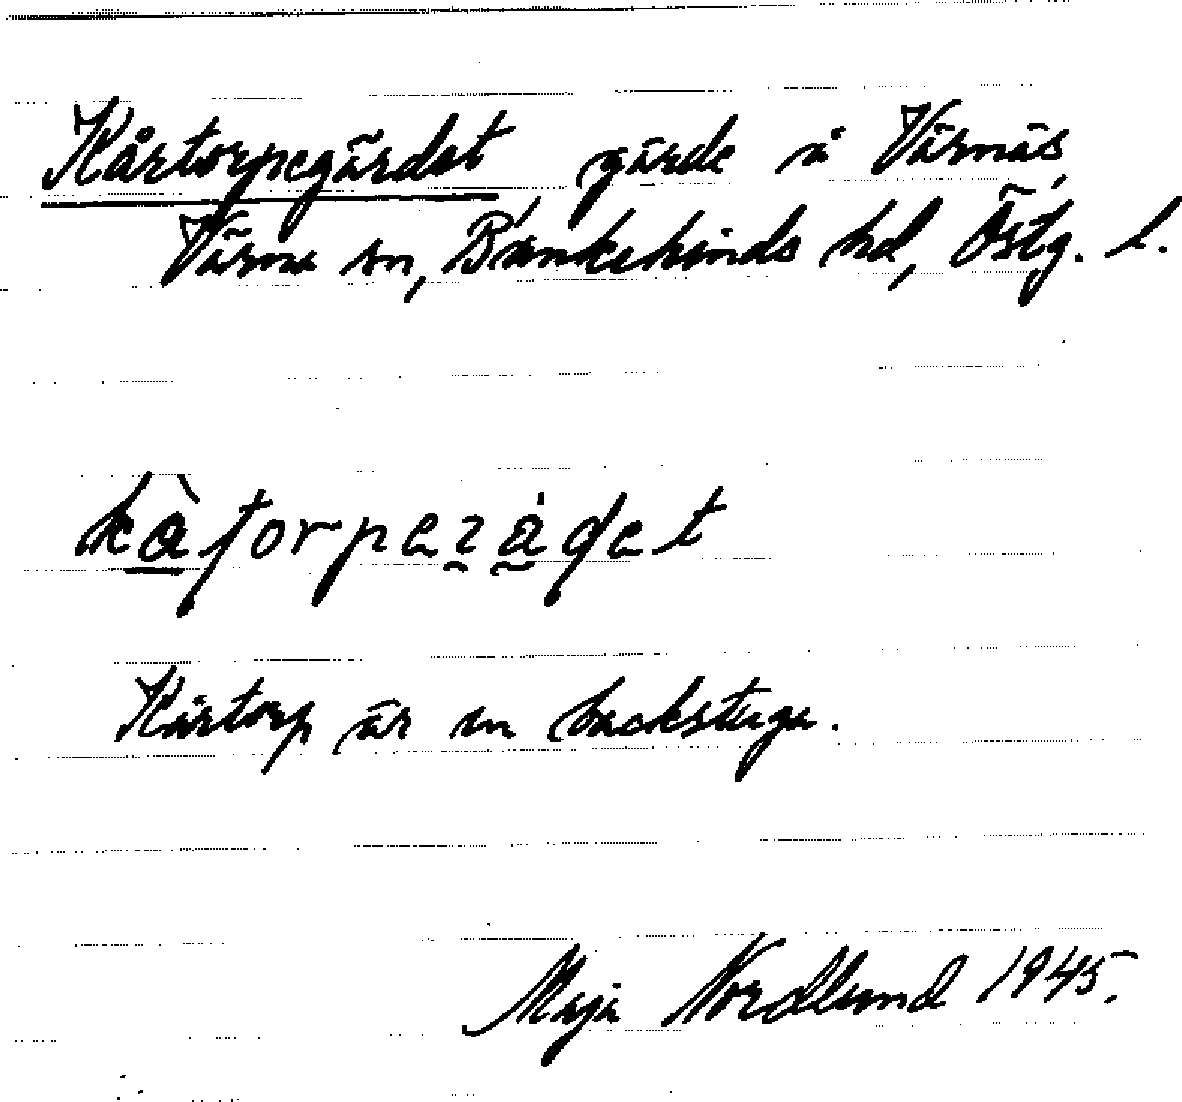 Kårtorpegärdet gärde å Värnäs,
Värna sn, Bankekinds hd, Östg. l.
kå̀ʃtorpeʒädet
Kårtorp är en backstuga.
Maja Nordlund 1945.